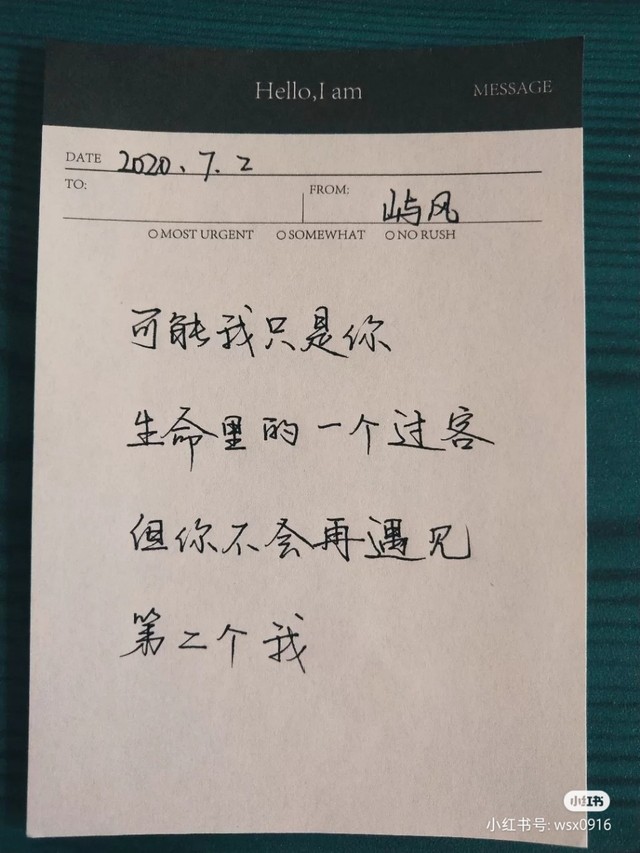 Hello,I am
MESSAGE
DATE 2020.7.2
TO:
FROM: 屿风
MOST URGENT SOMEWHAT NO RUSH
可能我只是你
生命里的一个过客
但你不会再遇见
第二个我
小红书
小红书号: wsx0916